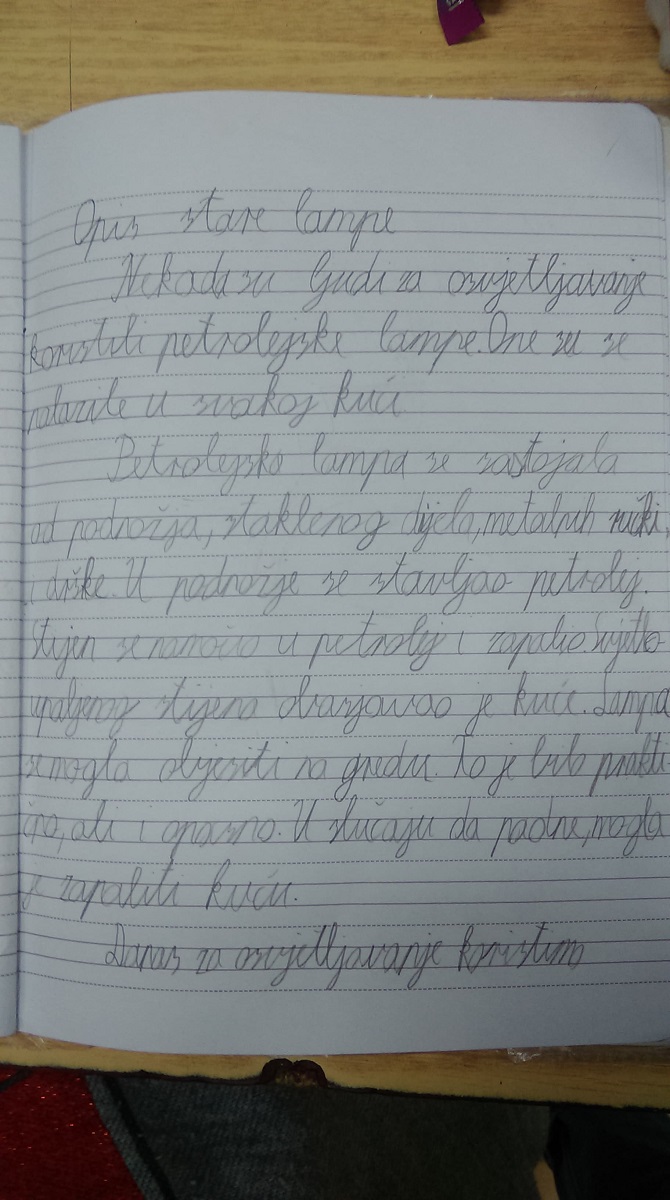 Opis stare lampe
Nekada su ljudi za osvjetljavanje
koristili petrolejske lampe. One su se
nalazile u svakoj kući.
Petrolejska lampa se sastojala
od podnožja, staklenog dijela, metalnih ručki
i drške. U podnožje se stavljao petrolej.
Stijen se namočio u petrolej i zapalio. Svjetlo
upaljenog stijena obasjavao je kuće. Lampa
se mogla objesiti na gredu. To je bilo prakti-
čno, ali i opasno. U slučaju da padne, mogla
je zapaliti kuću.
Danas za osvjetljavanje koristimo